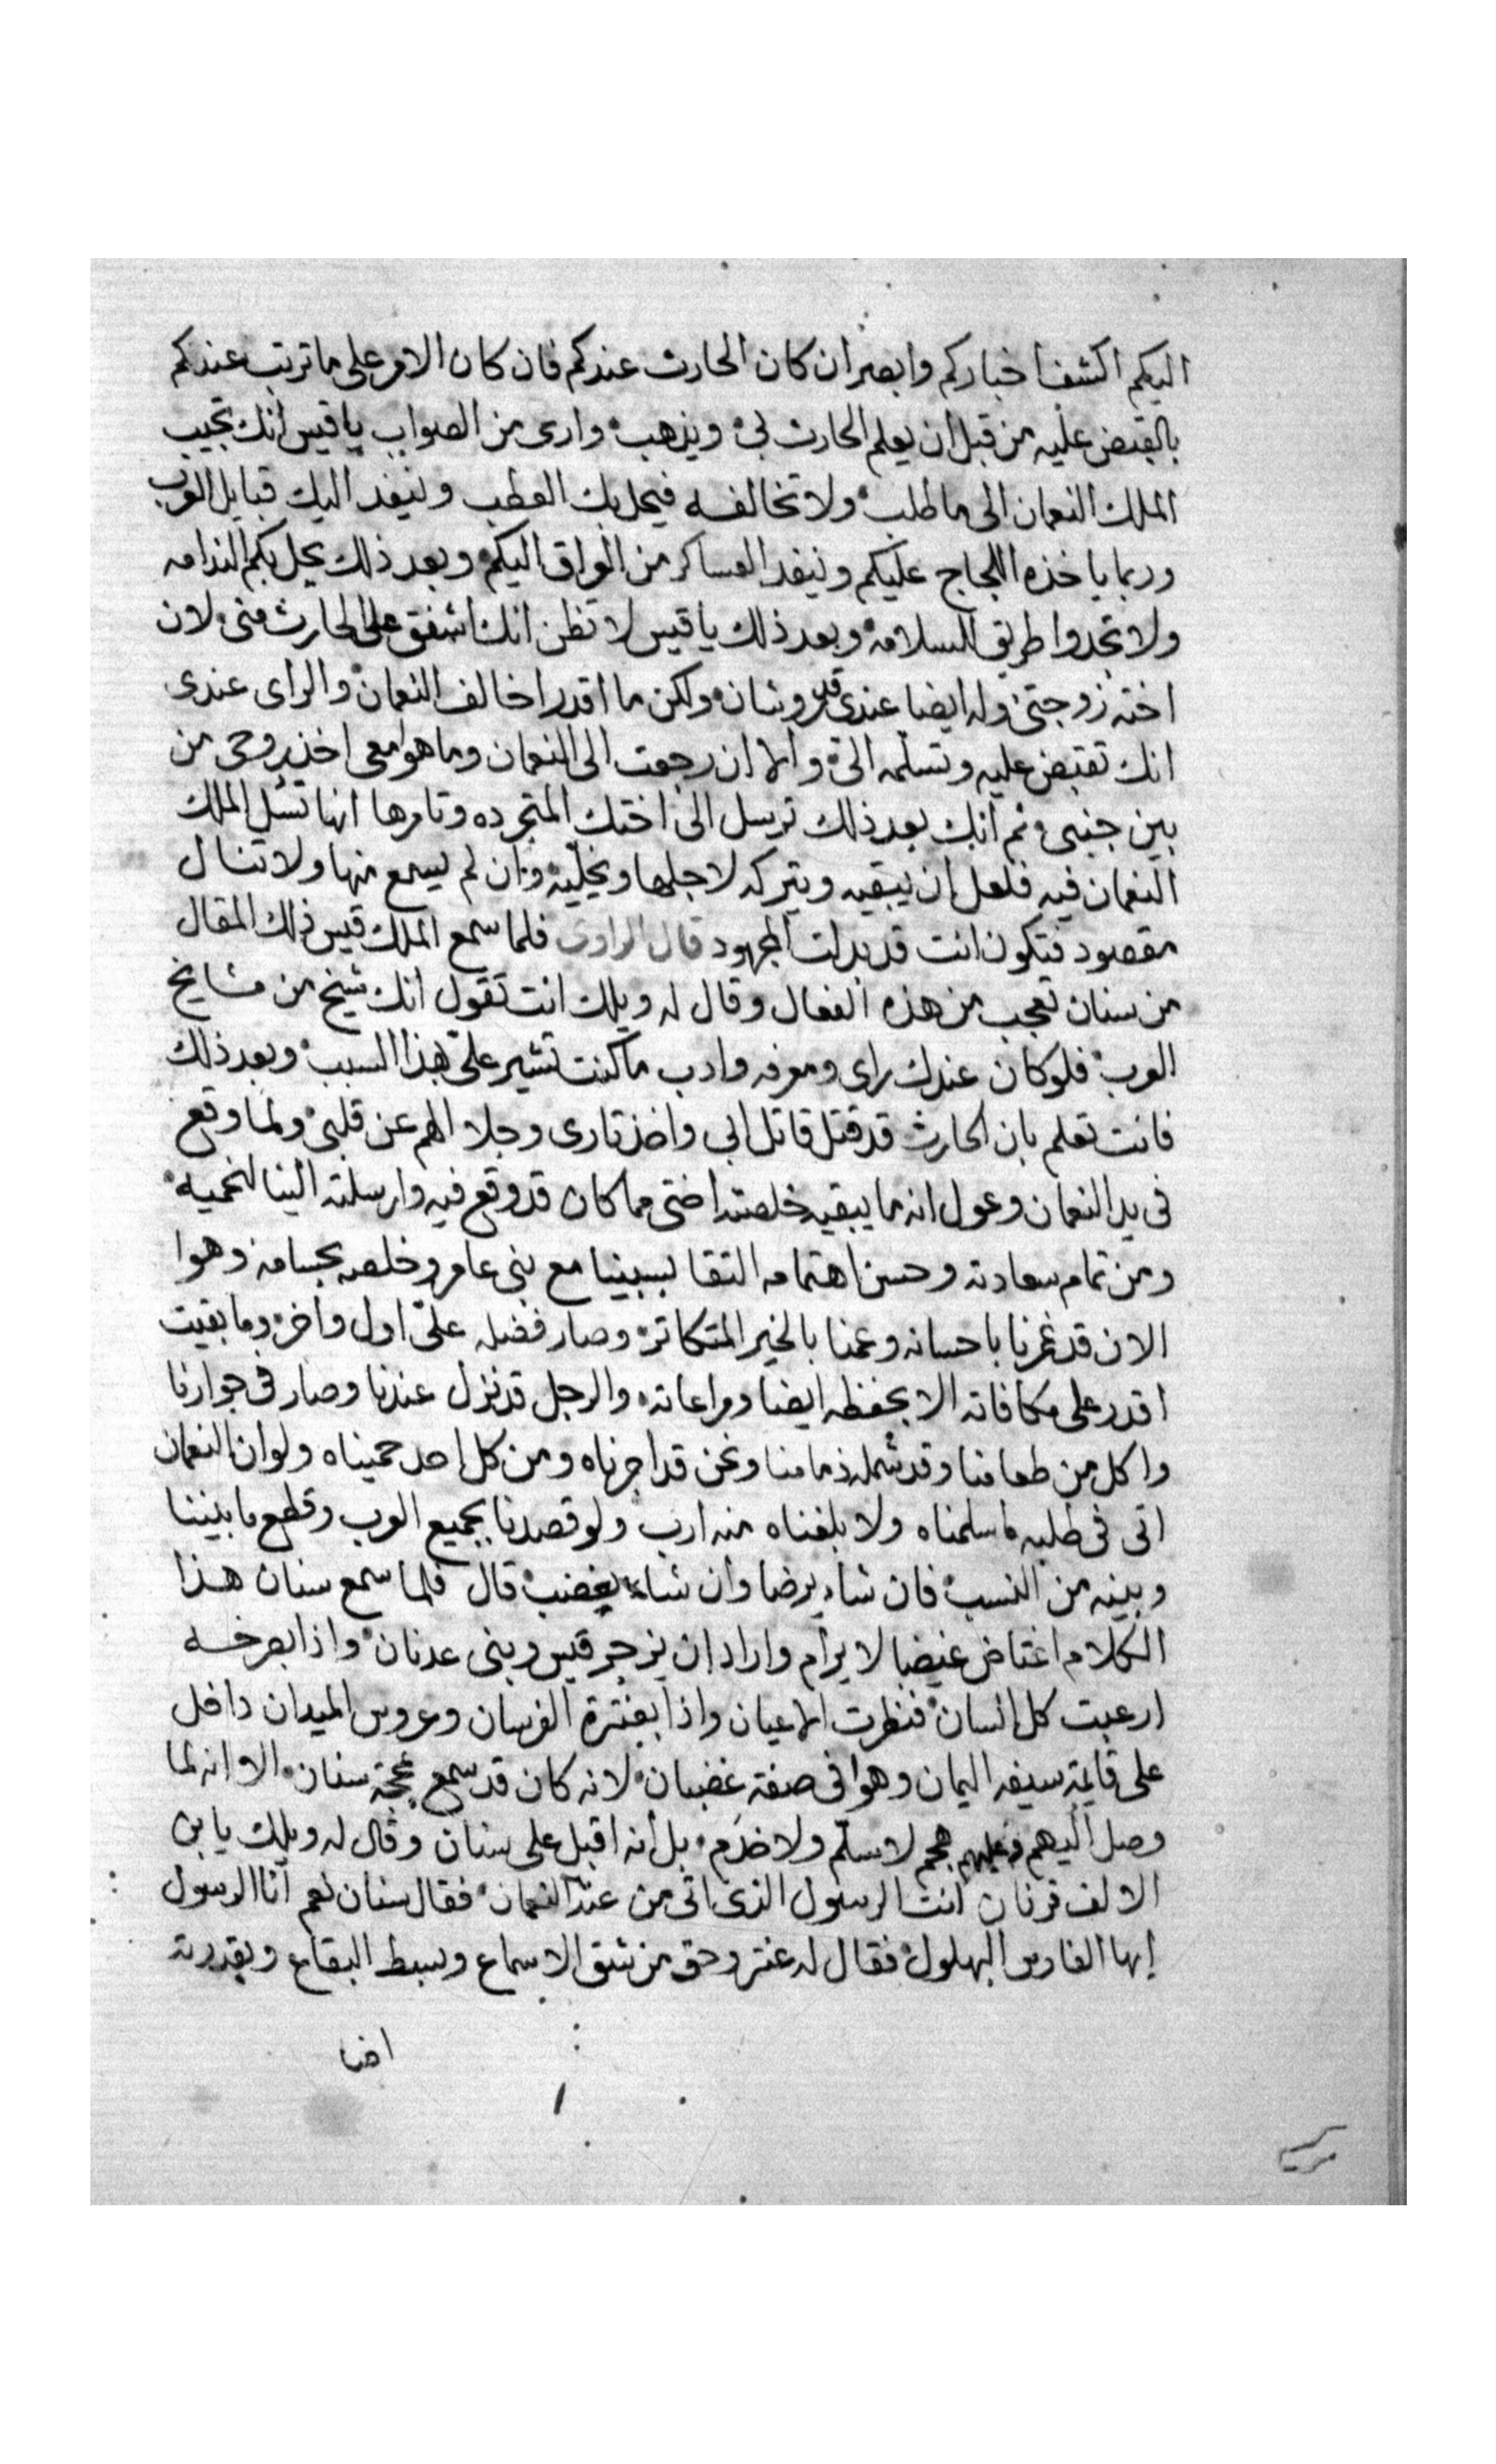 اليكم اكشف اخباركم وابصر ان كان الحارث عندكم فان كان الامر على ما ترتب عندكم
بالقبض عليه من قبل ان يعلم الحارث بي ويذهب وارى من الصواب يا قيس انك تجيب
الملك النعمان الى ما طلب ولا تخالفه فيحل بك العطب وينفد اليك قبايل العرب
وربما ياخذه اللجاج عليكم وينفد العساكر من العراق اليكم وبعد ذلك يحل بكم الندامه
ولا تجدوا طريق السلامه وبعد ذلك يا قيس لا تظن انك اشفق على الحارث مني لان
اخته زوجتي وله ايضا عندي قدر وشان ولكن ما اقدر اخالف النعمان والراى عندى
انك تقبض عليه وتسلمه الي والا ان رجعت الى النعمان وما هوا معى اخذ روحى من
بين جنبي ثم انك بعد ذلك ترسل الى اختك المتجرده وتامرها انها تسل الملك
النعمان فيه فلعل ان يبقيه ويتركه لاجلها ويخليه وان لم يسمع منها ولا تنال
مقصود فتكون انت قد بدلت المجهود قال الراوى فلما سمع الملك قيس ذلك المقال
من سنان تعجب من هذه الفعال وقال له ويلك انت تقول انك شيخ من مشايخ
العرب فلو كان عندك راى ومعرفه وادب ما كنت تشير علي بهذا السبب وبعد ذلك
فانت تعلم بان الحارث قد قتل قاتل ابي واخذ تارى وجلا الهم عن قلبي ولما وقع
فى يد النعمان وعول انه ما يبقيه خلصته اختى مما كان قد وقع فيه وارسلته الينا لنحميه
ومن تمام سعادته وحسن اهتمامه التقا بسبينا مع بني عامر وخلصه بحسامه وهوا
الان قد غمرنا باحسانه وعمنا بالخير المتكاتر وصار فضله علي اول واخر وما بقيت
اقدر على مكافاته الا بحفظه ايضا ومراعاته والرجل قد نزل عندنا وصار فى جوارنا
واكل من طعامنا وقد شمله ذمامنا ونحن قد اجرناه ومن كل احد حميناه ولو ان النعمان
اتى فى طلبه ما سلمناه ولا بلغناه منه ارب ولو قصدنا بجميع العرب وقطع ما بيننا
وبينه من النسب فان شاء يرضا وان شاء يغضب قال فلما سمع سنان هذا
الكلام اغتاض غيضا لا يرام واراد ان يزجر قيس وبنى عدنان واذا بصرخه
ارعبت كل انسان فنظرت الاعيان واذا بعنترة الفرسان وعروس الميدان داخل
على قايمة سيفه اليمان وهوا فى صفة غضبان لانه كان قد سمع عجة سنان الا وانه لما
وصل اليهم وعليهم هجم لا سلم ولا خدم بل انه اقبل على سنان وقال له ويلك يا بن
الالف قرنان انت الرسول الذى اتى من عند النعمان فقال سنان نعم انا الرسول
ايها الفارس البهلول فقال له عنتر وحق من شق الاسماع وبسط البقاع وبقدرته
اضا